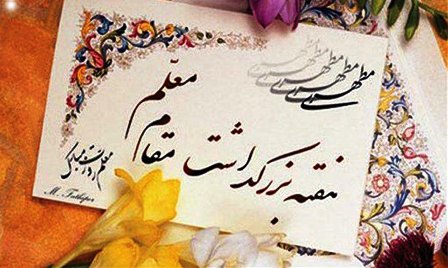 مطهری
مطهری
مطهری
مطهری
هفته بزرگداشت مقام معلّم
معلم روزت مبارک